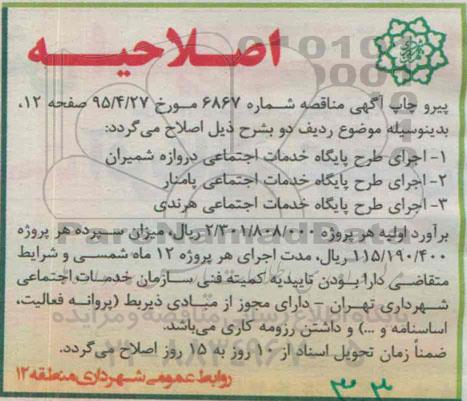 اصلاحیه
پیرو چاپ آگهی مناقصه شماره ۶۸۶۷ مورخ ۹۵/۴/۲۷ صفحه ۱۲،
بدینوسیله موضوع ردیف دو بشرح ذیل اصلاح می‌گردد:
۱- اجرای طرح پایگاه خدمات اجتماعی دروازه شمیران
۲- اجرای طرح پایگاه خدمات اجتماعی پامنار
۳- اجرای طرح پایگاه خدمات اجتماعی هرندی
برآورد اولیه هر پروژه ۲/۳۰۱/۸۰۸/۰۰۰ ریال، میزان سپرده هر پروژه
۱۱۵/۱۹۰/۴۰۰ ریال، مدت اجرای هر پروژه ۱۲ ماه شمسی و شرایط
متقاضی دارا بودن تاییدیه کمیته فنی سازمان خدمات اجتماعی
شهرداری تهران - دارای مجوز از مبادی ذیربط (پروانه فعالیت،
اساسنامه و ...) و داشتن رزومه کاری می‌باشد.
ضمناً زمان تحویل اسناد از ۱۰ روز به ۱۵ روز اصلاح می‌گردد.
روابط عمومی شهرداری منطقه ۱۲
۳۳